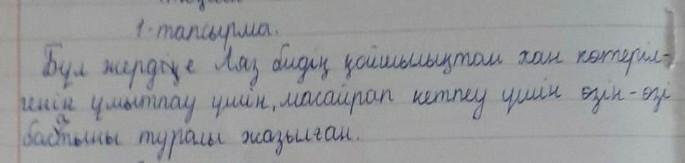 1-тапсырма.
Бұл жердіңе Аяз бидің қойшылықтан хан көтеріл-
генін ұмытпау үшін, масайрап кетпеу үшін өзін-өзі
басатыны туралы жазылған.